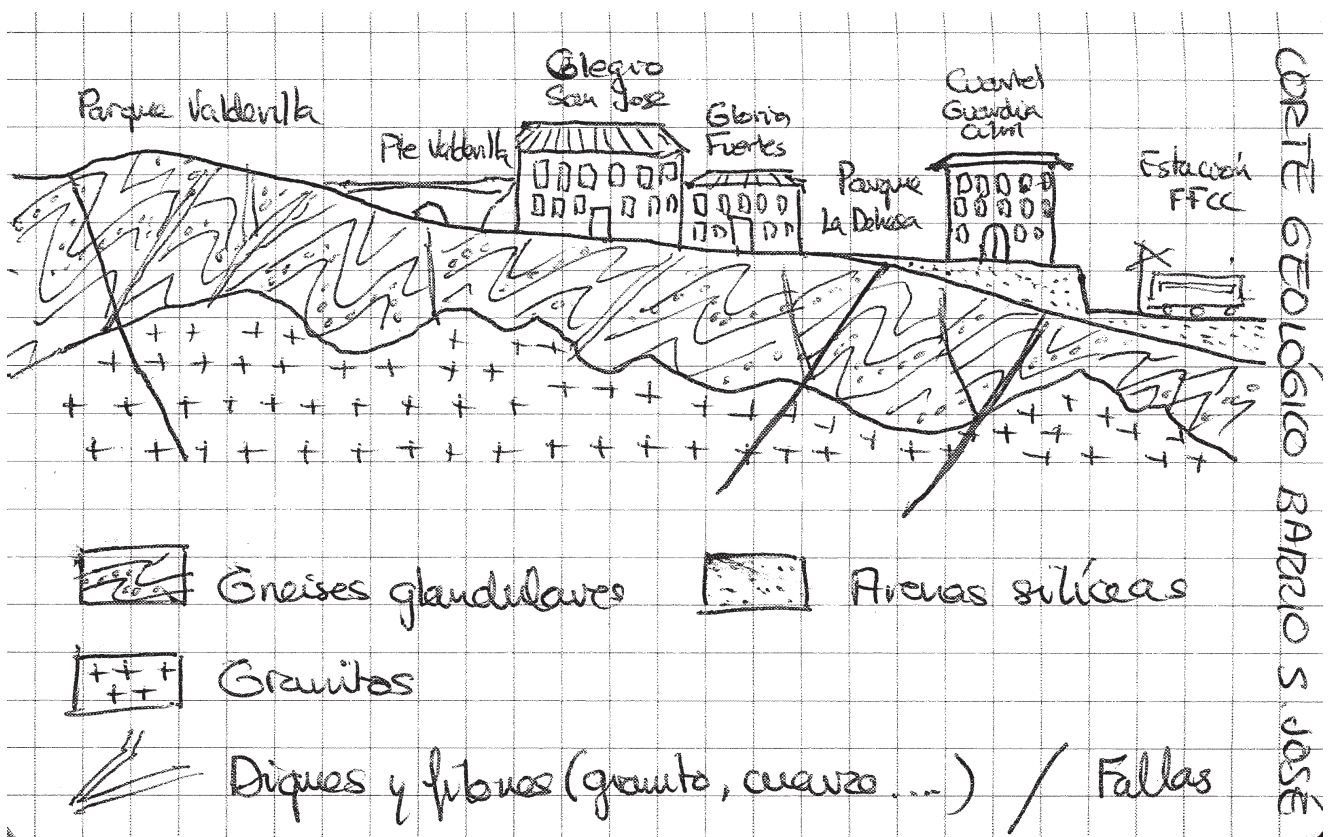 Parque Valdevilla
Pte Valdevilla
Colegio
San Jose
Gloria
Fuertes
Parque
La Dehesa
Cuartel
Guardia
Civil
Estación
FFCC
CORTE GEOLÓGICO BARRIO S. JOSÉ
Gneises glandulares
Arenas silíceas
Granitos
Diques y filones (granito, cuarzo ....)
Fallas